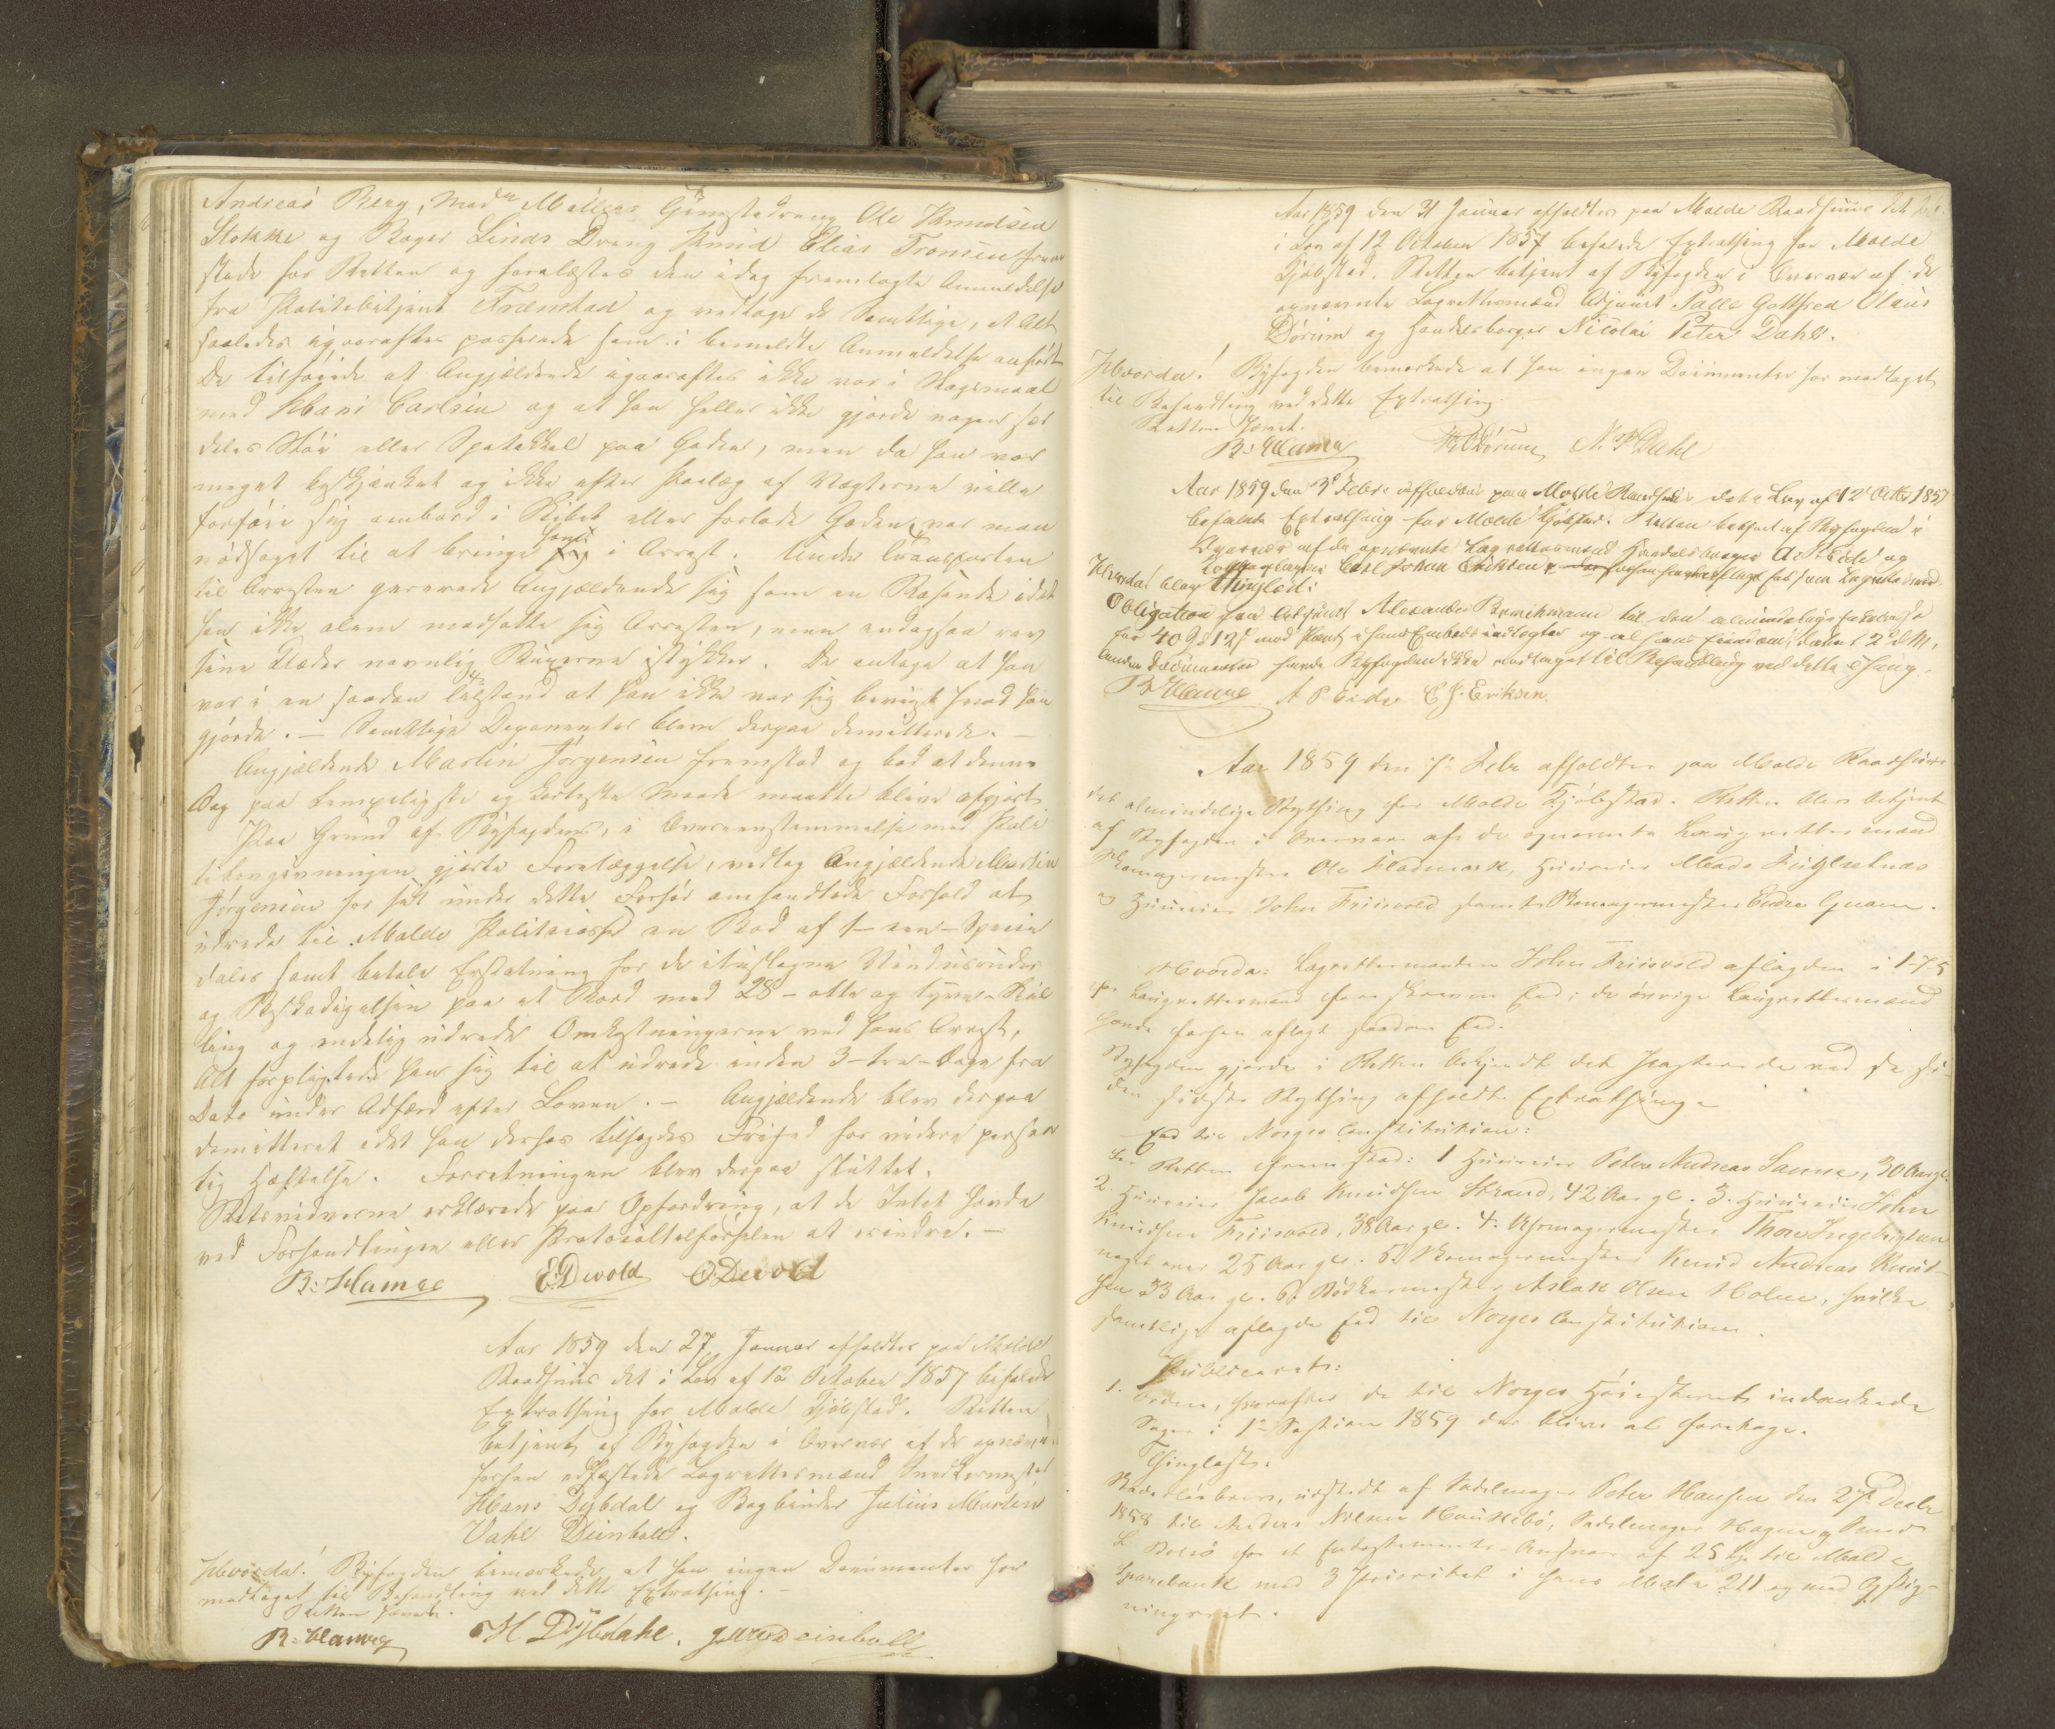 Andreas Berg, Mad. Møllers Gaardsdreng Ole Knudsen
Stokke og Bager Linds Dreng Knud Elias Tronsen frem-
stode for Retten og forelæstes den idag fremlagte Anmeldelse
fra Politibetjent Frænstad og vedtoge de Samtlige, at Alt
saaledes igaaraftes passerede som i bemeldte Anmeldelse anført
De tilføiede at Angjældende igaaraftes ikke var i Slagsmaal
med Hans Carlsen og at han heller ikke gjorde nogen sær
deles Støi eller Spetakkel paa Gaden, men da han var
meget beskjænket og ikke efter Paalæg af Vægterne vilde
forføie sig ombord i Skibet eller forlade Gaden, var man
nødsaget til at bringe ham i Arrest. Under Transporten
til Arresten gererede Angjældende sig som en Rasende idet
han ikke alene modsatte sig Arresten, men endogsaa rev
sine Klæder navnlig Buxerne istykker. De antoge at han
var i en saadan Tilstand at han ikke var sig bevidst hvad han
gjorde. — Samtlige Deponenter bleve derpaa demitterede. —
Angjældende Martin Jørgensen fremstod og bad at denne
Sag paa lempeligste og korteste Maade maatte blive afgjort.
Paa Grund af Byfogdens, i Overeensstemmelse med Poli
tilovgivningen gjorte Forelæggelse, vedtog Angjældende Martin
Jørgensen for sit under dette Forhør omhandlede Forhold at
udrede til Molde Politicasse en Bod af 1 - een - Specie
daler samt betale Erstatning for de ituslagne Vinduesruder
og Beskadigelsen paa et Bord med 28 - otte og tyve - Skil
ling og endelig udrede Omkostningerne ved hans Arrest,
Alt forpligtede han sig til at udrede inden 3 - tre - Dage fra
Dato under Adfærd efter Loven. — Angjældende blev derpaa
demitteret idet han derhos tilsagdes Frihed for videre person
lig Hæftelse. Forretningen blev derpaa sluttet.
Retsvidnerne erklærede paa Opfordring, at de Intet havde
ved Forhandlingen eller Protocoltilførselen at erindre. —
B: Hamre E: Devold O. Devold
Aar 1859 den 27 Januar afholdtes paa Molde
Raadhuus det i Lov af 12 October 1857 befalede
Extrathing for Molde Kjøbstad. Retten
betjent af Byfogden i Overvær af de opnævnte
forhen edfæstede Lagrettesmænd Snedkermester
Hans Dybdal og Bogbinder Julius Martin
Vahl Deinboll.
Hvorda! Byfogden bemærkede at han ingen Documenter har
modtaget til Behandling ved dette Extrathing. —
Retten hævet.
B: Hamre H Dÿbdahl.
Aar 1859 den 31 Januar afholdtes paa Molde Raadhuus det
i Lov af 12 October 1857 befalede Extrathing for Molde
Kjøbstad. Retten betjent af Byfogden i Overvær af de
opnævnte Lagrettesmænd Adjunct Palle Gottfred Olaus
Dørum og Handelsborger Nicolai Peter Dahl.
Hvorda! Byfogden bemærkede at han ingen Documenter har modtaget
til Behandling ved dette Extrathing.
Retten hævet.
B: Hamre Dørum N. P Dahl
Aar 1859 den 3 Febr: afholdtes paa Molde Raadhuus det i Lov af 12 Octbr 1857
befalede Extrathing for Molde Kjøbstad. Retten betjent af Byfogden i
Overvær af de opnævnte Lagrettesmænd Handelsborger A. P. Eide og
Carl Johan Eriksen
Hvorda! blev Thinglæst:
Obligation fra Alexander til den almindelige
for 40 Spd 12 med Pant i hans
andre Documenter havde Byfogden ikke modtaget til Behandling ved dette Thing.
B Hamre A P Eide C J. Eriksen.
Aar 1859 den 7 Febr afholdtes paa Molde Raadhuus
det almindelige Bything for Molde Kjøbstad. Retten blev betjent
af Byfogden i Overvær af de opnævnte Laugrettesmænd
Skomagermester Ole Hadmark, Huuseier Mads Fuglsetnæs
og Huuseier John Friisvold samt Skomagermester Endre Gnæne.
Hvorda: Lagrettesmanden John Friisvold aflagde i 1-7-5
for Laugrettesmænd foreskrevne Eed; de øvrige Laugrettesmænd
havde forhen aflagt saadan Eed.
Byfogden gjorde i Retten bekjendt det Passerede ved de si-
den sidste Bything afholdte Extrathinge.
Eed til Norges Constitution:
For Retten fremstod: 1 Huuseier Peter Andreas Sanne, 30 Aar gl.
2. Huuseier Jacob Knudsen Strand, 42 Aar gl. 3. Huuseier John
Knudsen Friisvold, 38 Aar gl. 4. Uhrmagermester Thore Ingebrigtsen
noget over 25 Aar gl. 5. Skomagermester Knud Andreas Knud-
sen 33 Aar gl. 6. Bødkermester Aslak Olsen Holm, hvilke
samtlige aflagde Eed til Norges Constitution.
Publicerets:
1. Orden, hvorefter de til Norges Høiesteret indankede
Sager i 1ste Session 1859 der blive at foretage.
Thinglæst.
udstedt af Sadelmager Peter Hansen den 27 Decbr
1858 til Anders Nilsen Haukebø, Sadelmager Hagen og
for et af 25 til Molde
Sparebank med 3 Prioritet i hans Matr. 211 og med Opsig-
ningsret.